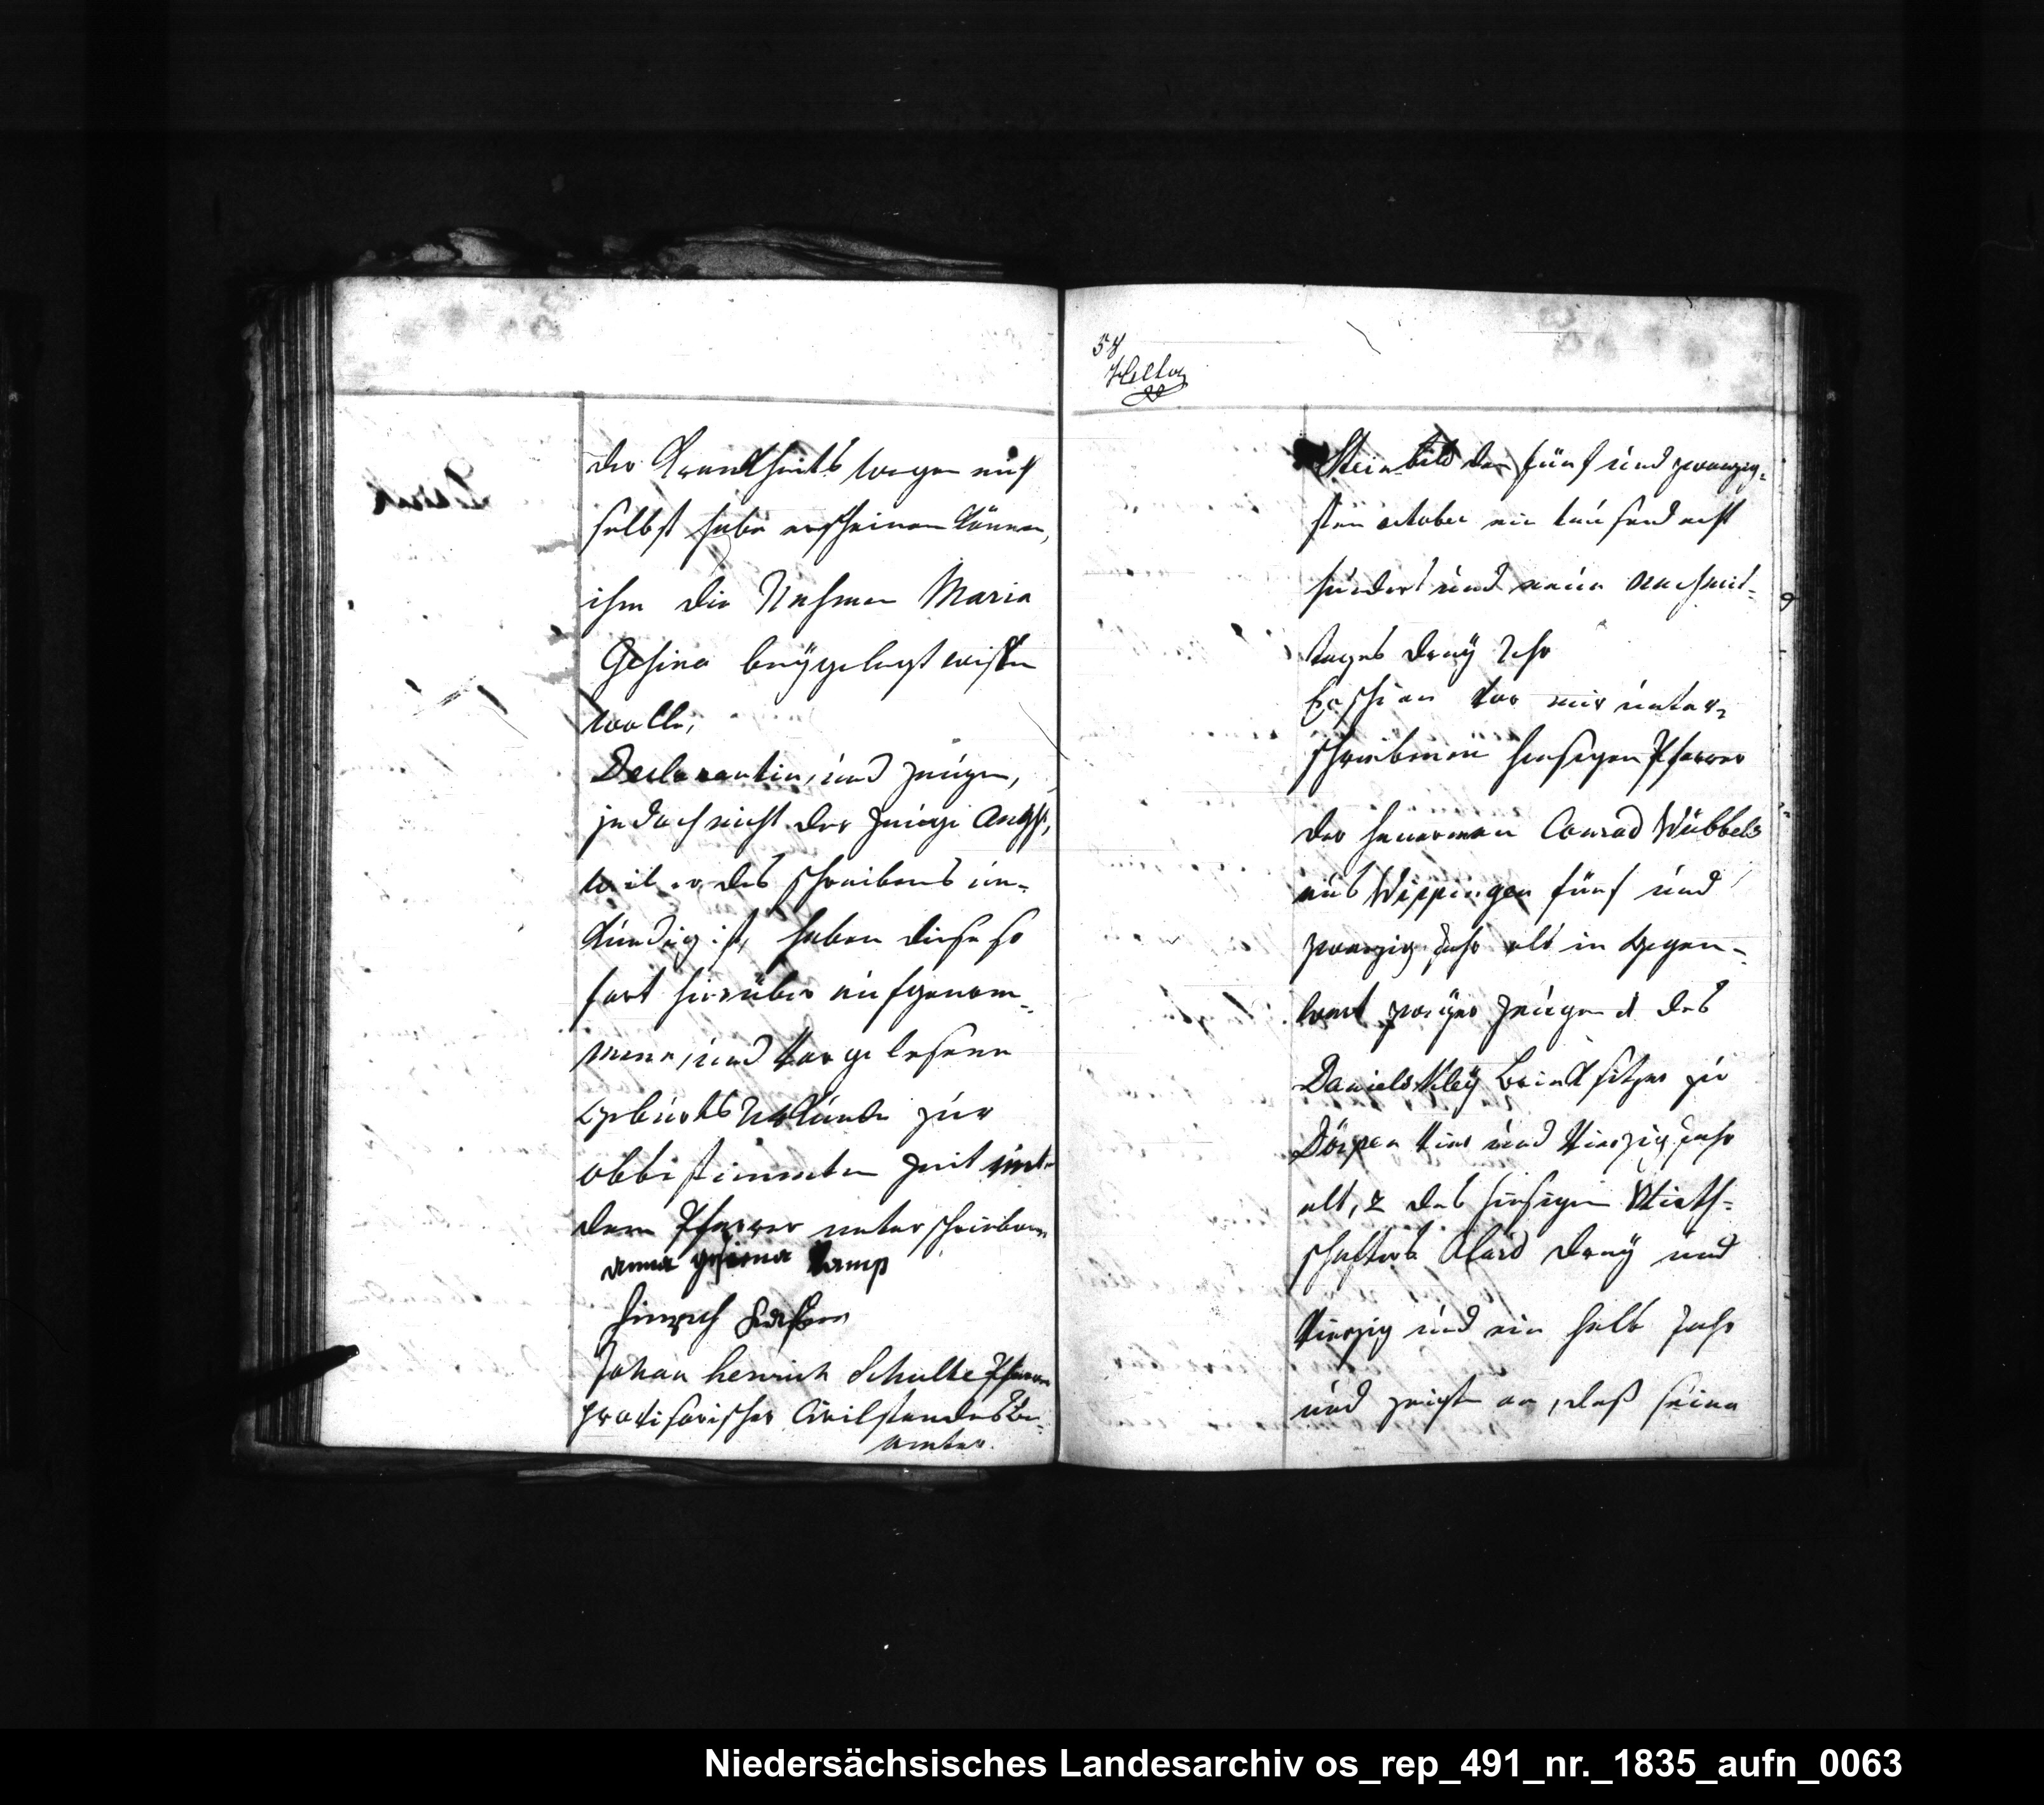 der Krankheits wegen nicht
selbst habe erscheinen können,
ihm die Nahmen Maria
Gesina beygelegt wissen
wolle,
Declarantin, und Zeugen,
jedoch nicht der Zeuge
weil er des schreibens un-
kundig ist, haben diese so
fort hierüber aufgenom-
mene, und vorgelesene
Geburts Urkunde zur
obbestimmten Zeit mit
dem Pfarrer unterschrieben
anna gesina Kamp
Hinrich
Johan henrich Schulte Pfarrer
provisorischer Civilstandes Be-
amter.
58
Steinbild den fünf und zwanzig-
sten october ein tausend acht
hundert und neun Nachmit-
tages drey Uhr
Erschien vor mir unter-
schriebenen hiesigen Pfarrer
der heuerman Conrad Wübbels
aus Wippingen fünf und
zwanzig Jahr alt in Gegen-
wart zweyer Zeugen 1 des
Daniels Kley Brinksitzer zu
Dörpen vier und vierzig Jahr
alt, 2 des hiesigen Wirth-
schafters drey und
vierzig und ein halb Jahr
und zeigte an, daß seine
Niedersächsisches Landesarchiv os_rep_491_nr._1835_aufn_0063